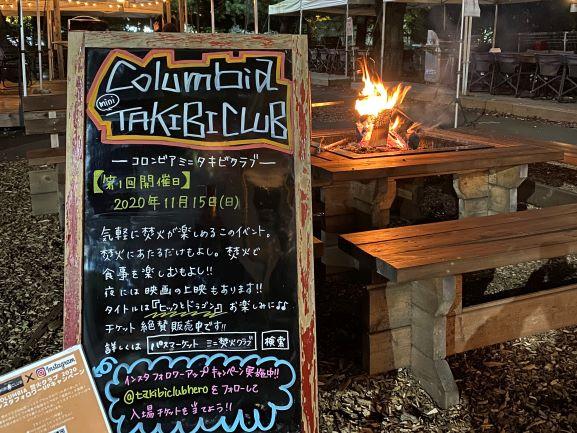 Columbia
mini
TAKIBI CLUB
ーコロンビアミニタキビクラブー
【第1回開催日】
2020年11月15日(日)
気軽に焚火が楽しめるこのイベント。
焚火にあたるだけもよし。焚火で
食事を楽しむもよし!!
夜には映画の上映もあります!!
タイトルは『ヒックとドラゴン』お楽しみにな
チケット絶賛販売中です!!
詳しくは パスマーケット ミニ焚火クラブ 検索
インスタフォロワーアップキャンペーン実施中!!
@takibiclubheroをフォローして
入場チケットを当てよう!!
Instagram
COLUMBIA 焚火クラブ 2020
インスタフォロワーUPキャンペーン